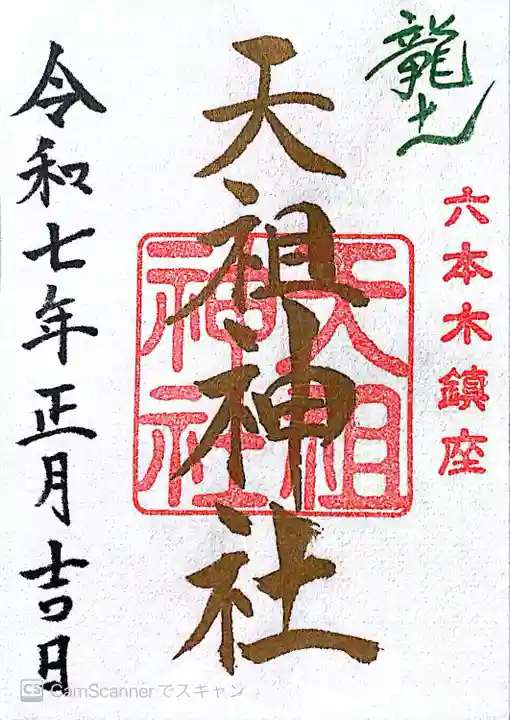 龍土
六本木鎮座
天祖神社
天祖神社
令和七年正月吉日
CS CamScannerでスキャン